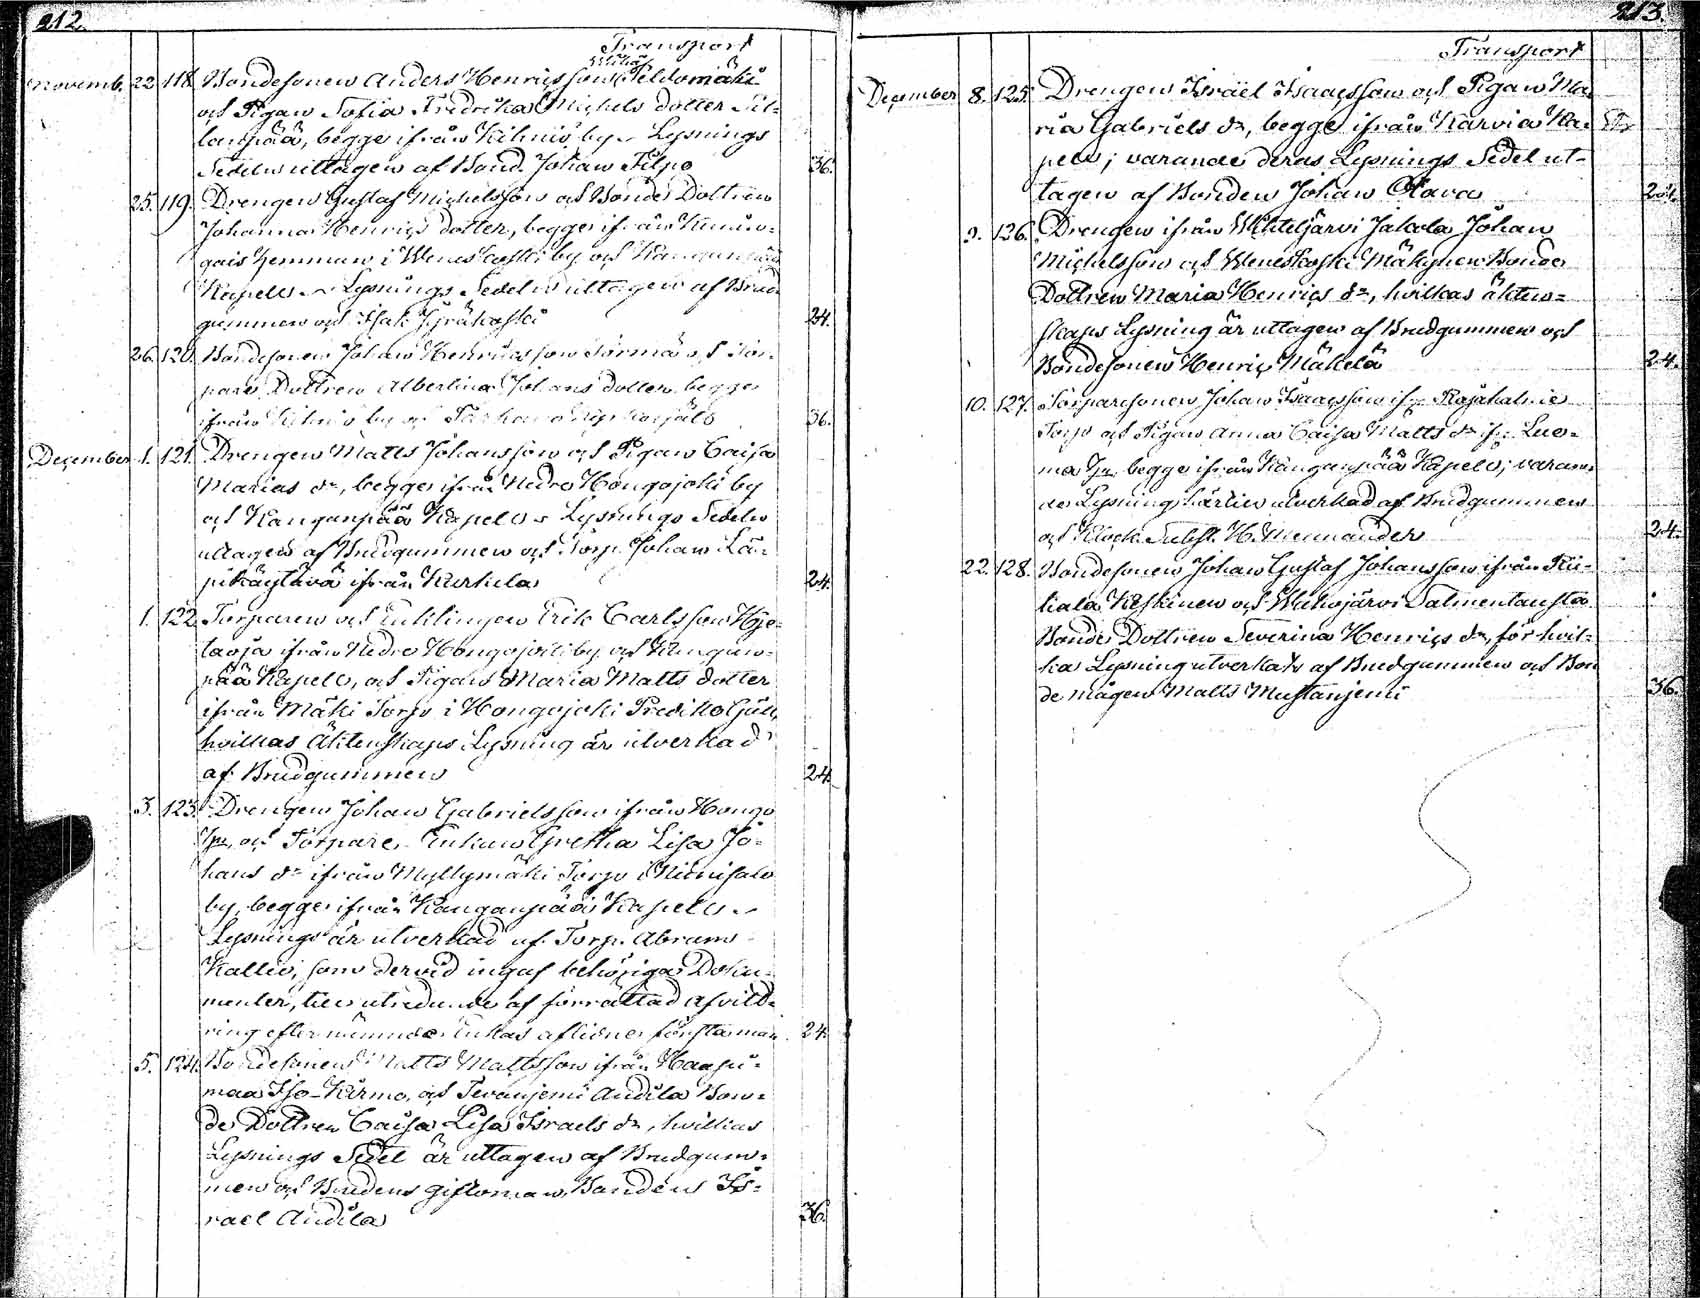 212.
Transport
Novemb. 22 118. Bondesonen Anders Henricsson Peldomäki
och Pigan Sofia Fredrika Michels dotter Sil-
lanpää, begge ifrån Kihniö by. Lysnings
Sedeln uttagen af Bond. Johan Filpo 36.
25. 119. Drengen Gustaf Michelsson och Bonde Dottren
Johanna Henrics dotter, begge ifrån
gais hemman i Weneskoski by och Kanganpää
Kapell. Lysnings Sedeln uttagen af Brud-
gummen och Isak Jyräkoski 24.
26. 120. Bondesonen Johan Henricsson Sormä och Tor-
pare Dottren Albertina Johans dotter begge
ifrån Kihniö by 36.
December 1. 121. Drengen Matts Johansson och Pigan Caisa
Marias dr, begge ifrån Nedre Hongojoki by
och Kanganpää Kapell. Lysnings Sedeln
uttagen af Brudgummen och Torp. Johan Lä-
pikäytävä ifrån Kurkela 24.
1. 122. Torparen och Enklingen Erik Carlsson Hyö-
taoja ifrån Nedre Hongojoki by och Kangan-
pää Kapell, och Pigan Maria Matts dotter
ifrån Mäki Torp i Hongojoki Prediko Gäll,
hvilkas Äktenskaps Lysning är utverkad
af Brudgummen 24.
3. 123. Drengen Johan Gabrielsson ifrån Hongo
by, och Torpare Enkan Gretha Lisa Jo-
hans dr ifrån Myllymäki Torp i Niinisalo
by, begge ifrån Kanganpää Kapell.
Lysnings är utverkad af Torp. Abram
Kallio, som dervid ingaf behöriga Doku-
menter, till utredande af förrättad afvitt-
ring efter nämnde Enkas aflidne första man 24.
5. 124. Bondesonen Matts Mattsson ifrån Haapi-
maa Iso-Kirmo, och Tevanjemi Andila Bon-
de Dottren Caisa Lisa Israels dr, hvilkas
Lysnings Sedel är uttagen af Brudgum-
men och Brudens giftoman, Bonden Is-
rael Andila 36.
213.
Transport
December 8. 125. Drengen Israel Isaacsson och Pigan Ma-
ria Gabriels dr, begge ifrån Karvia Ka-
pell; varande deras Lysnings Sedel ut-
tagen af Bonden Johan Ojava 24.
9. 126. Drengen ifrån Wihteljärvi Jakola Johan
Michelsson och Weneskoski Mäkynen Bonde
Dottren Maria Henrics dr, hvilkas äkten-
skaps Lysning är uttagen af Brudgummen och
Bondesonen Henric Mäkelä 24.
10. 127. Torparesonen Johan Isaacsson ifr.
Torp och Pigan Anna Caisa Matts dr ifr. Luo-
ma by begge ifrån Kanganpää Kapell; varan-
de Lysning härtill utverkad af Brudgummen
och Klock. Subst. H. Mennander 24.
22. 128. Bondesonen Johan Gustaf Johansson ifrån Rii-
kala Keskinen och Wahojärvi Salmentausta
Bonde Dottren Severina Henrics dr, för hvil-
ka Lysning utverkats af Brudgummen och Bon
de mågen Matts Mustanjemi 36.